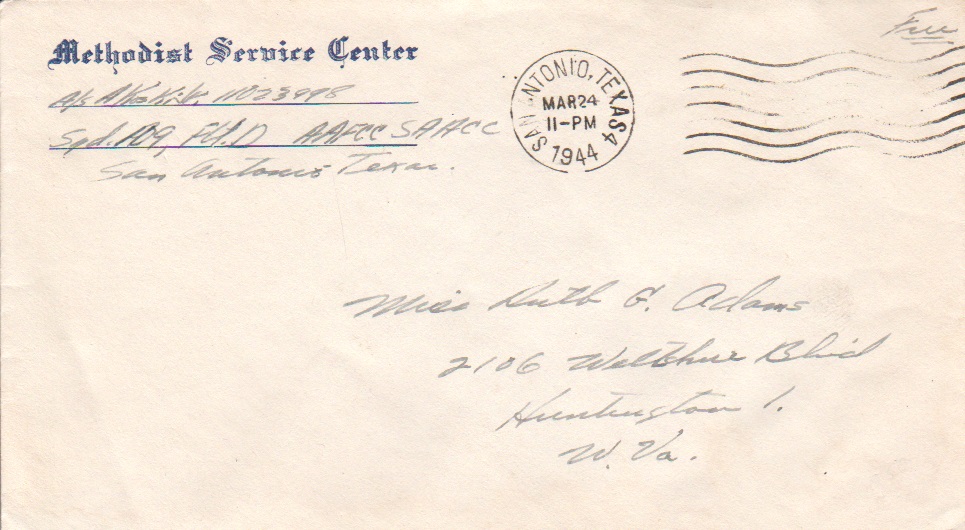 Methodist Service Center
Free
A/S A K Kirk, 11023998
Sqd. 109, Flt. D AAFCC SAACC
San Antonio Texas.
SAN ANTONIO, TEXAS 4
MAR 24
11-PM
1944
Miss Ruth G. Adams
2106 Wiltshire Blvd
Huntington 1.
W. Va.